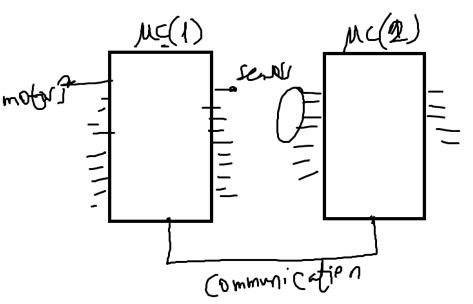 MC(1)
MC(2)
motors
communication